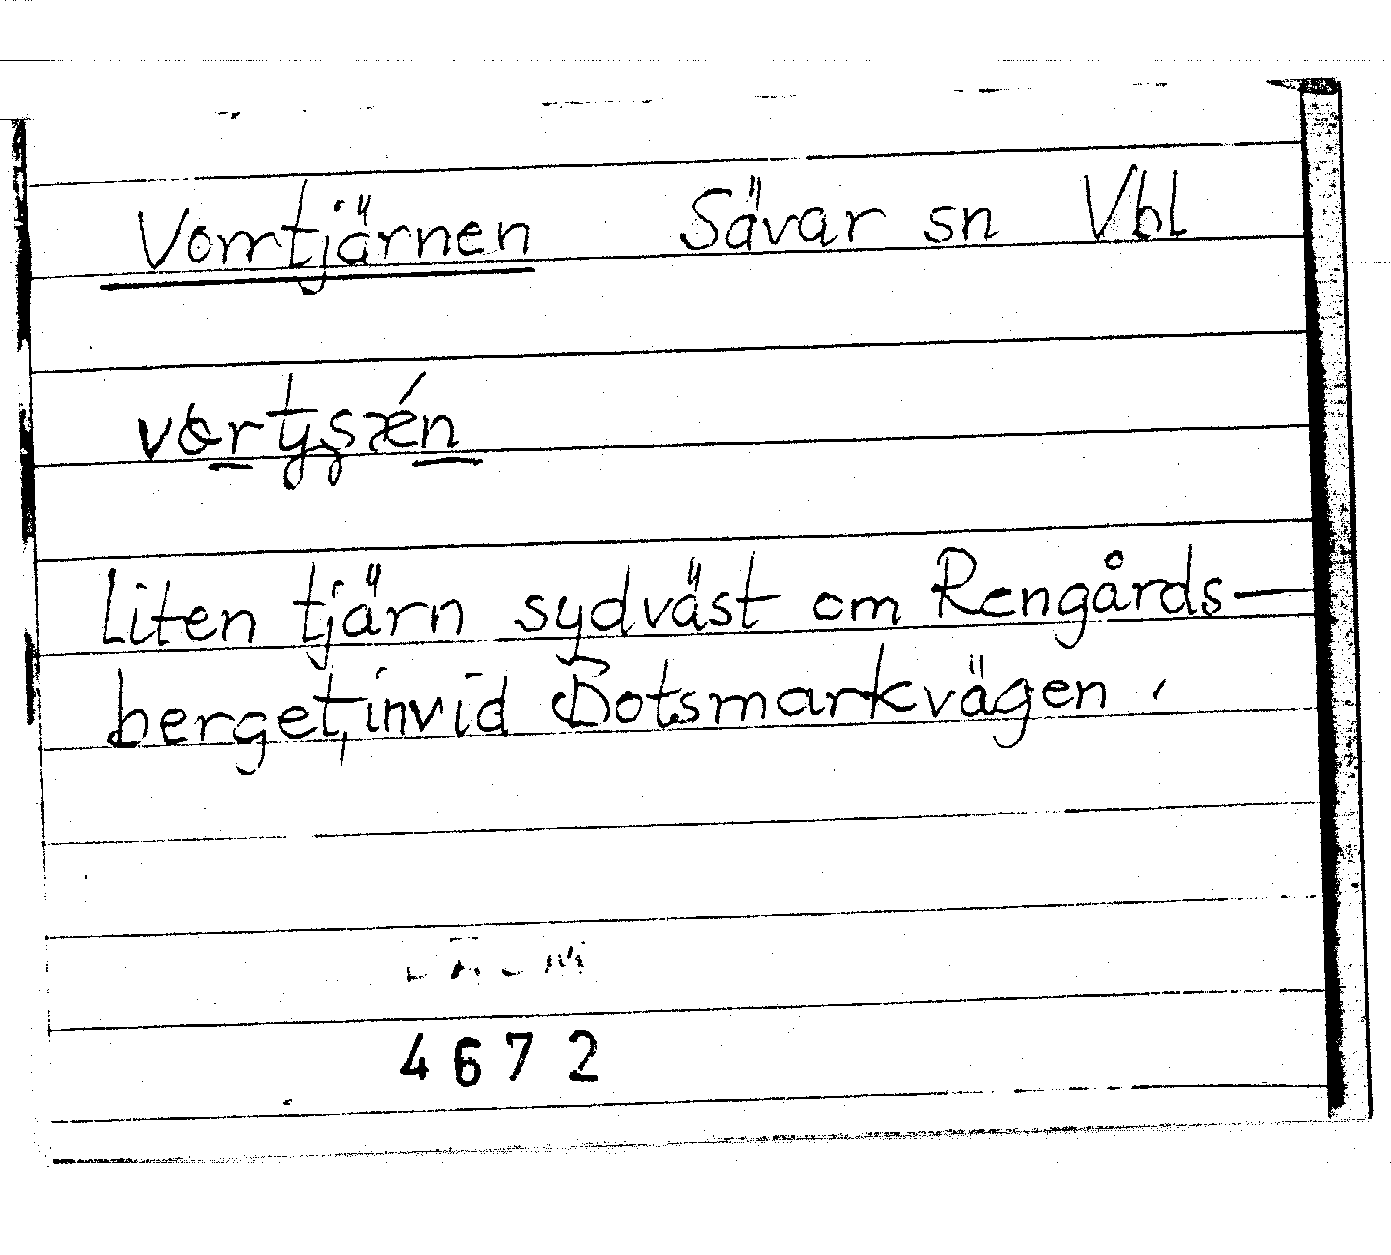 Vorrtjärnen Sävar sn Vbl
Liten tjärn sydväst om Rengårds-
berget, invid Botsmarkvägen.
4672